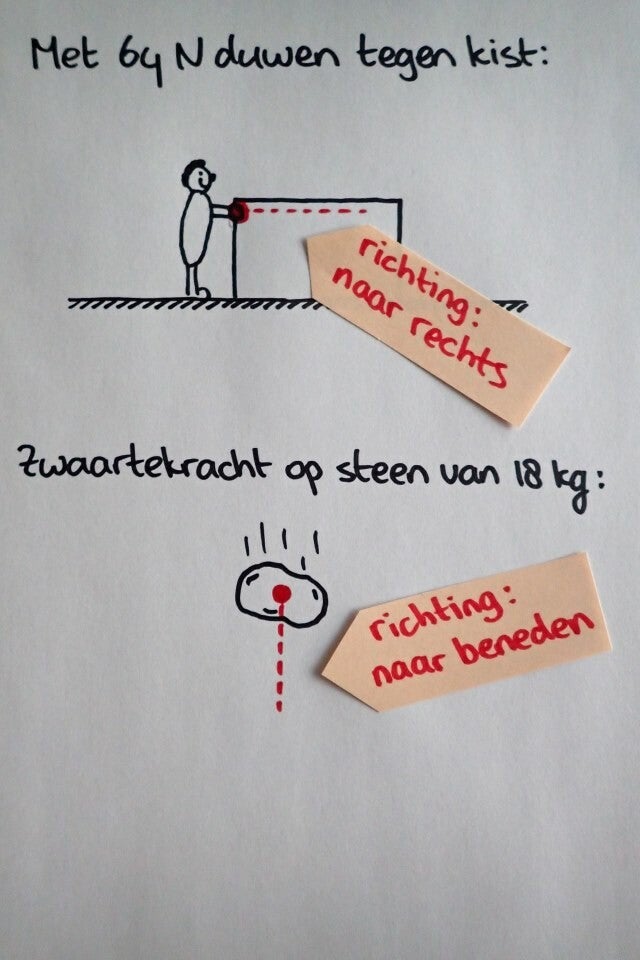 Met 64 N duwen tegen kist:
richting:
naar rechts
Zwaartekracht op steen van 18 kg:
richting:
naar beneden